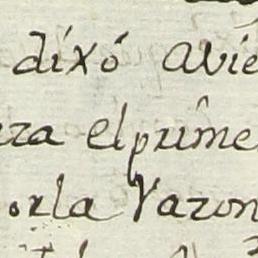 dixó avie
ra el prime
orla Varon